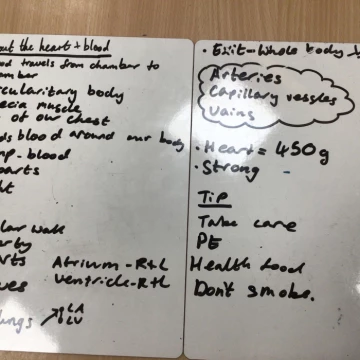 out the heart + blood
od travels from chamber to
amber
rcularitary body
ecia muscle
of our chest
ds blood around our body
mp - blood
parts
ht
lar wak
erby
arts Atrium - R+L
ves Ventricle - R+L
lungs LA
LV
• Exit - whole body
Arteries
Capillary vessles
Vains
• Heart = 450g
• Strong -
Tip
Take care
PE
Health food
Don't smoke.